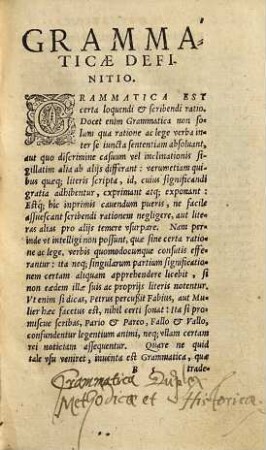 GRAMMA-
TICÆ DEFI-
NITIO.
GRAMMATICA EST
certa loquendi & scribendi ratio.
Docet enim Grammatica non so-
lum qua ratione ac lege verba in-
ter se iuncta sententiam absoluant,
aut quo discrimine casuum vel inclinationis sin-
gillatim alia ab alijs differant: verumetiam qui-
bus quæq; literis scripta, id, cuius significandi
gratia adhibentur, exprimant atq; exponant:
Estq; hic inprimis cauendum pueris, ne facile
assuescant scribendi rationem negligere, aut lite-
ras alias pro alijs temere vsurpare. Nam per-
inde vt intelligi non possunt, quæ sine certa ratio-
ne ac lege, verbis quomodocunque consatis effe-
runtur: ita neq; singularum partium significatio-
nem certam aliquam apprehendere licebit, si
non eædem illæ suis ac proprijs literis notentur.
Vt enim si dicas, Petrus percussit Fabius, aut Mu-
lier hæc facetus est, nihil certi sonat: Ita si pro-
miscue scribas, Pario & Pareo, Fallo & Fallo,
confundentur legentium animi, neq; vllam certam
rei noticiam assequentur. Quare ne quid
tale vsu veniret, inuenta est Grammatica, quæ
B trade-
Grammatica Duplex
Methodicæ et Historica.